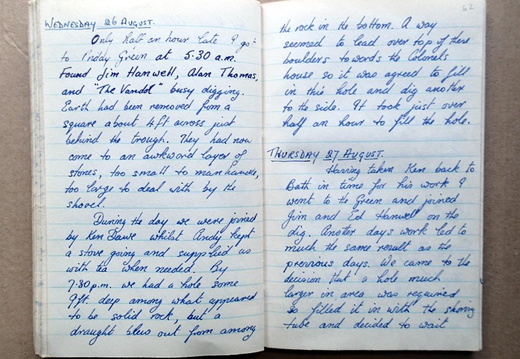 WEDNESDAY 26 AUGUST.
Only half an hour late I got
to Priddy Green at 5.30 a.m.
found Jim Hanwell, Alan Thomas,
and "The Vandal" busy digging.
Earth had been removed from a
square about 4ft across just
behind the trough. They had now
come to an awkward layer of
stones, too small to manhandle,
too large to deal with by the
shovel.
During the day we were joined
by Ken Dawe whilst Andy kept
a stove going and supplied us
with tea when needed. By
7.30p.m. we had a hole some
9ft deep among what appeared
to be solid rock, but a
draught blew out from among
62
the rock in the bottom. A way
seemed to lead over top of these
boulders towards the Colonels
house so it was agreed to fill
in this hole and dig another
to the side. It took just over
half an hour to fill the hole.
THURSDAY 27 AUGUST.
Having taken Ken back to
Bath in time for his work I
went to the Green and joined
Jim and Ed Hanwell on the
dig. Another days work led to
much the same result as the
previous days. We came to the
decision that a hole much
larger in area was required
so filled it in with the shoring
tube and decided to wait